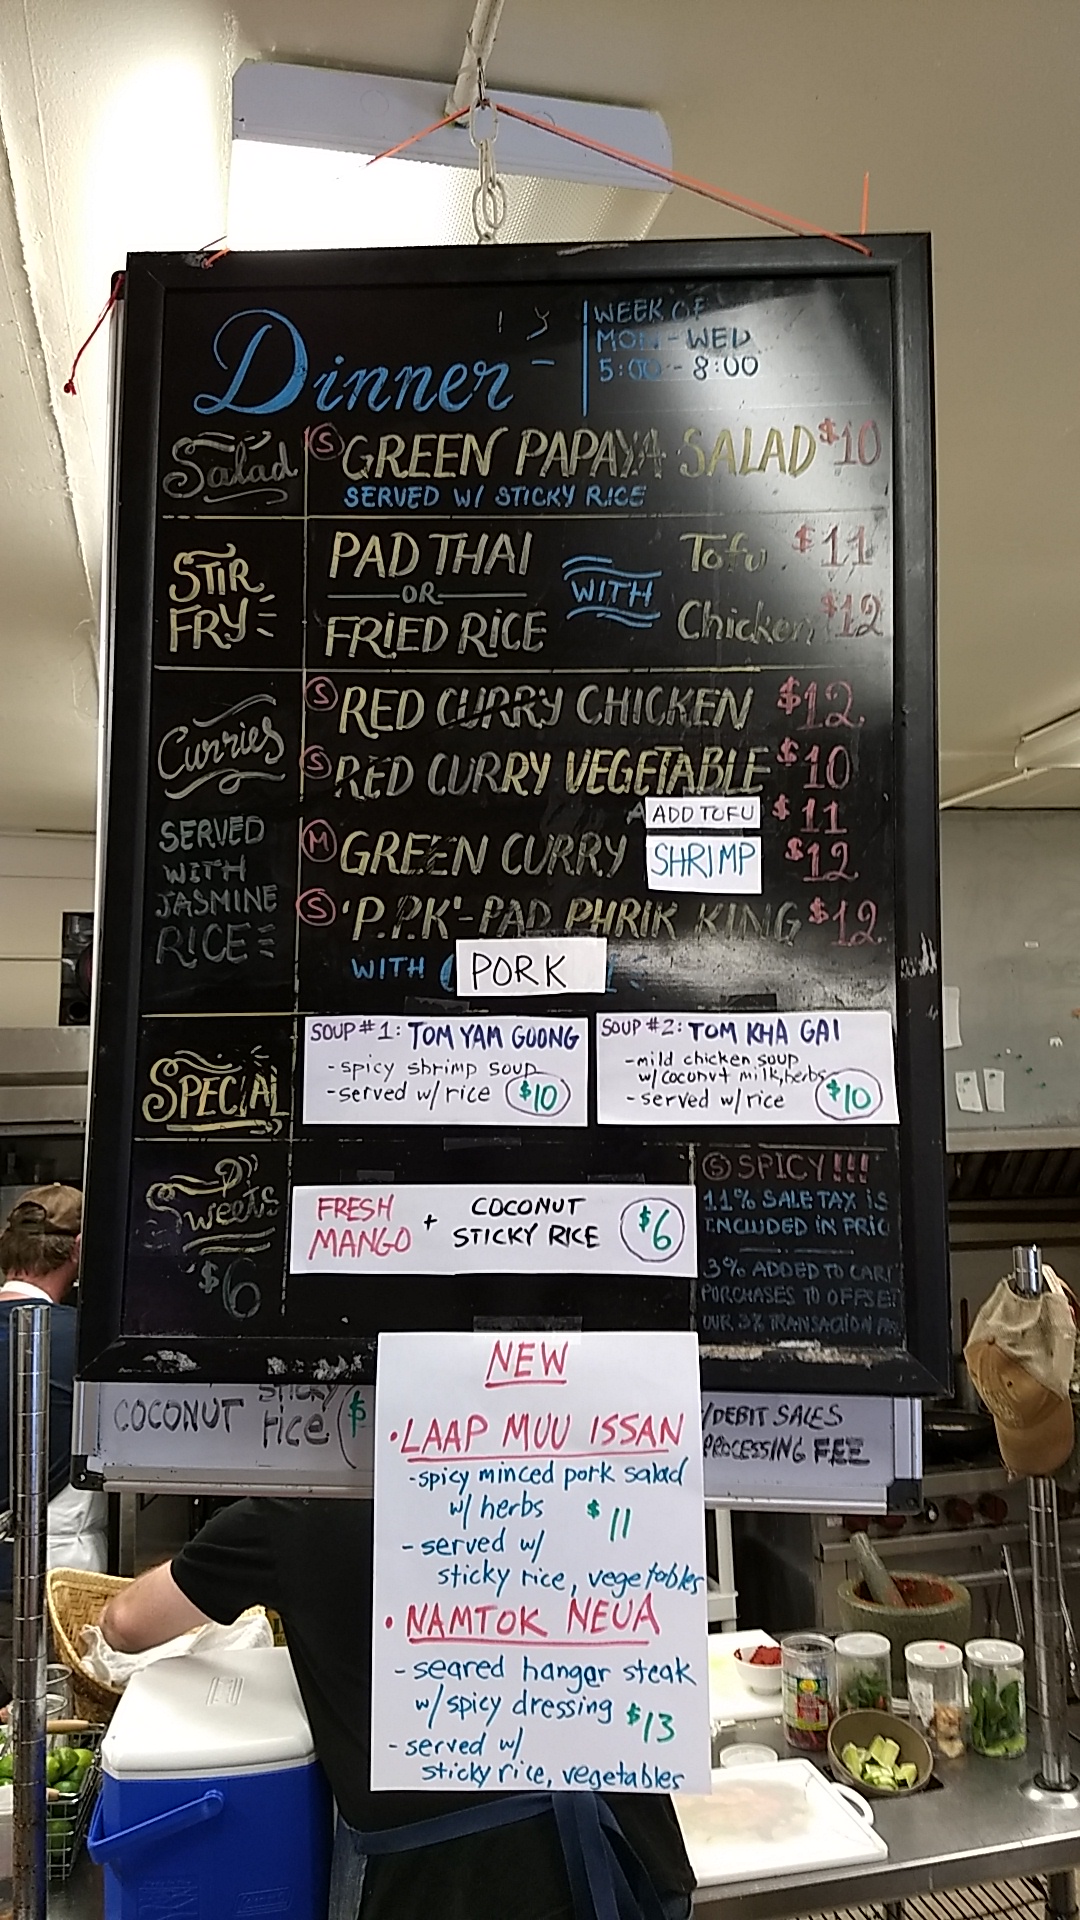 Dinner -
WEEK OF
MON-WED
5:00 - 8:00
Salad
S GREEN PAPAYA SALAD $10
SERVED W/ STICKY RICE
STIR
FRY
PAD THAI
OR
FRIED RICE
WITH
Tofu $11
Chicken $12
Curries
SERVED
WITH
JASMINE
RICE
S RED CURRY CHICKEN $12
S RED CURRY VEGETABLE $10
ADD TOFU $11
M GREEN CURRY SHRIMP $12
S 'P.P.K'-PAD PHRIK KING $12
WITH PORK
SPECIAL
SOUP #1: TOM YAM GOONG
- spicy shrimp soup
- served w/ rice $10
SOUP #2: TOM KHA GAI
- mild chicken soup
w/ coconut milk, herbs
- served w/ rice $10
Sweets
$6
FRESH
MANGO
+
COCONUT
STICKY RICE
$6
S SPICY!!!
11% SALE TAX IS
INCLUDED IN PRIC
3% ADDED TO CAR
PURCHASES TO OFFSET
OUR 3%
COCONUT sticky
rice ($
/DEBIT SALES
PROCESSING FEE
NEW
• LAAP MUU ISSAN
- spicy minced pork salad
w/ herbs $11
- served w/
sticky rice, vegetables
• NAMTOK NEUA
- seared hanger steak
w/ spicy dressing $13
- served w/
sticky rice, vegetables